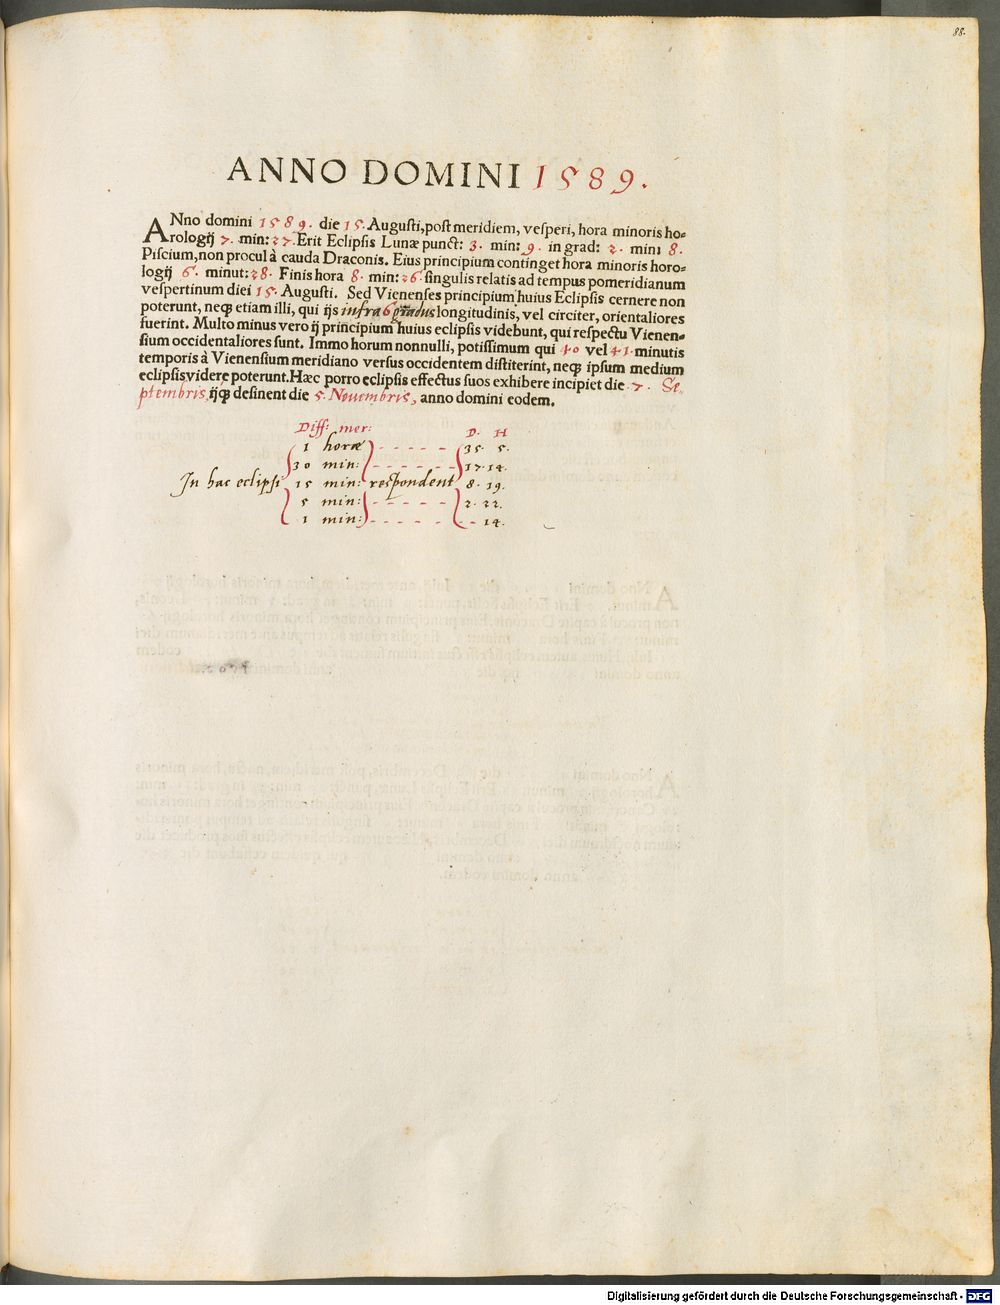 88.
ANNO DOMINI 1589.
ANno domini 1589. die 15. Augusti, post meridiem, vesperi, hora minoris ho=
rologij 7. min: 27. Erit Eclipsis Lunæ punct: 3. min: 9. in grad: 2. mini 8.
Piscium, non procul à cauda Draconis. Eius principium continget hora minoris horo=
logij 6. minut: 28. Finis hora 8. min: 26. singulis relatis ad tempus pomeridianum
vespertinum diei 15. Augusti. Sed Vienenses principium huius Eclipsis cernere non
poterunt, neqꝫ etiam illi, qui ijs infra 6 gradus longitudinis, vel circiter, orientaliores
fuerint. Multo minus vero ij principium huius eclipsis videbunt, qui respectu Vienen=
sium occidentaliores sunt. Immo horum nonnulli, potissimum qui 40 vel 41 minutis
temporis à Vienensium meridiano versus occidentem distiterint, neqꝫ ipsum medium
eclipsis videre poterunt. Hæc porro eclipsis effectus suos exhibere incipiet die 7. Se
ptembris, ijqꝫ desinent die 5. Nouembris, anno domini eodem.
Diff: mer: D. H
1 horæ - - - - - 35. 5.
30 min: - - - - - 17. 14.
In hac eclipsi 15 min: respondent 8. 19.
5 min: - - - - - 2. 22.
1 min: - - - - - -- 14.
Digitalisierung gefördert durch die Deutsche Forschungsgemeinschaft - DFG